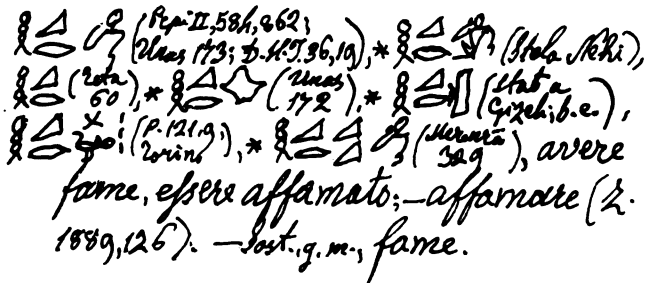 𓎛𓈎𓂋𓀁 (Pepi II, 58h, 862; Unas 173; D.H.I. 36,19), * 𓎛𓈎𓂋 (Stela Nehi),
𓎛𓈎𓂋 (Teta 60), * 𓎛𓈎𓂋 (Unas 172), * 𓎛𓈎𓂋 (Stat a Gizeh; b.e.),
𓎛𓈎𓂋 (P. 121,9; Torino), * 𓎛𓈎𓂋𓈎 (Merenrā 389), avere
fame, essere affamato; — affamare (Z.
1889,126). — Sost., g. m., fame.